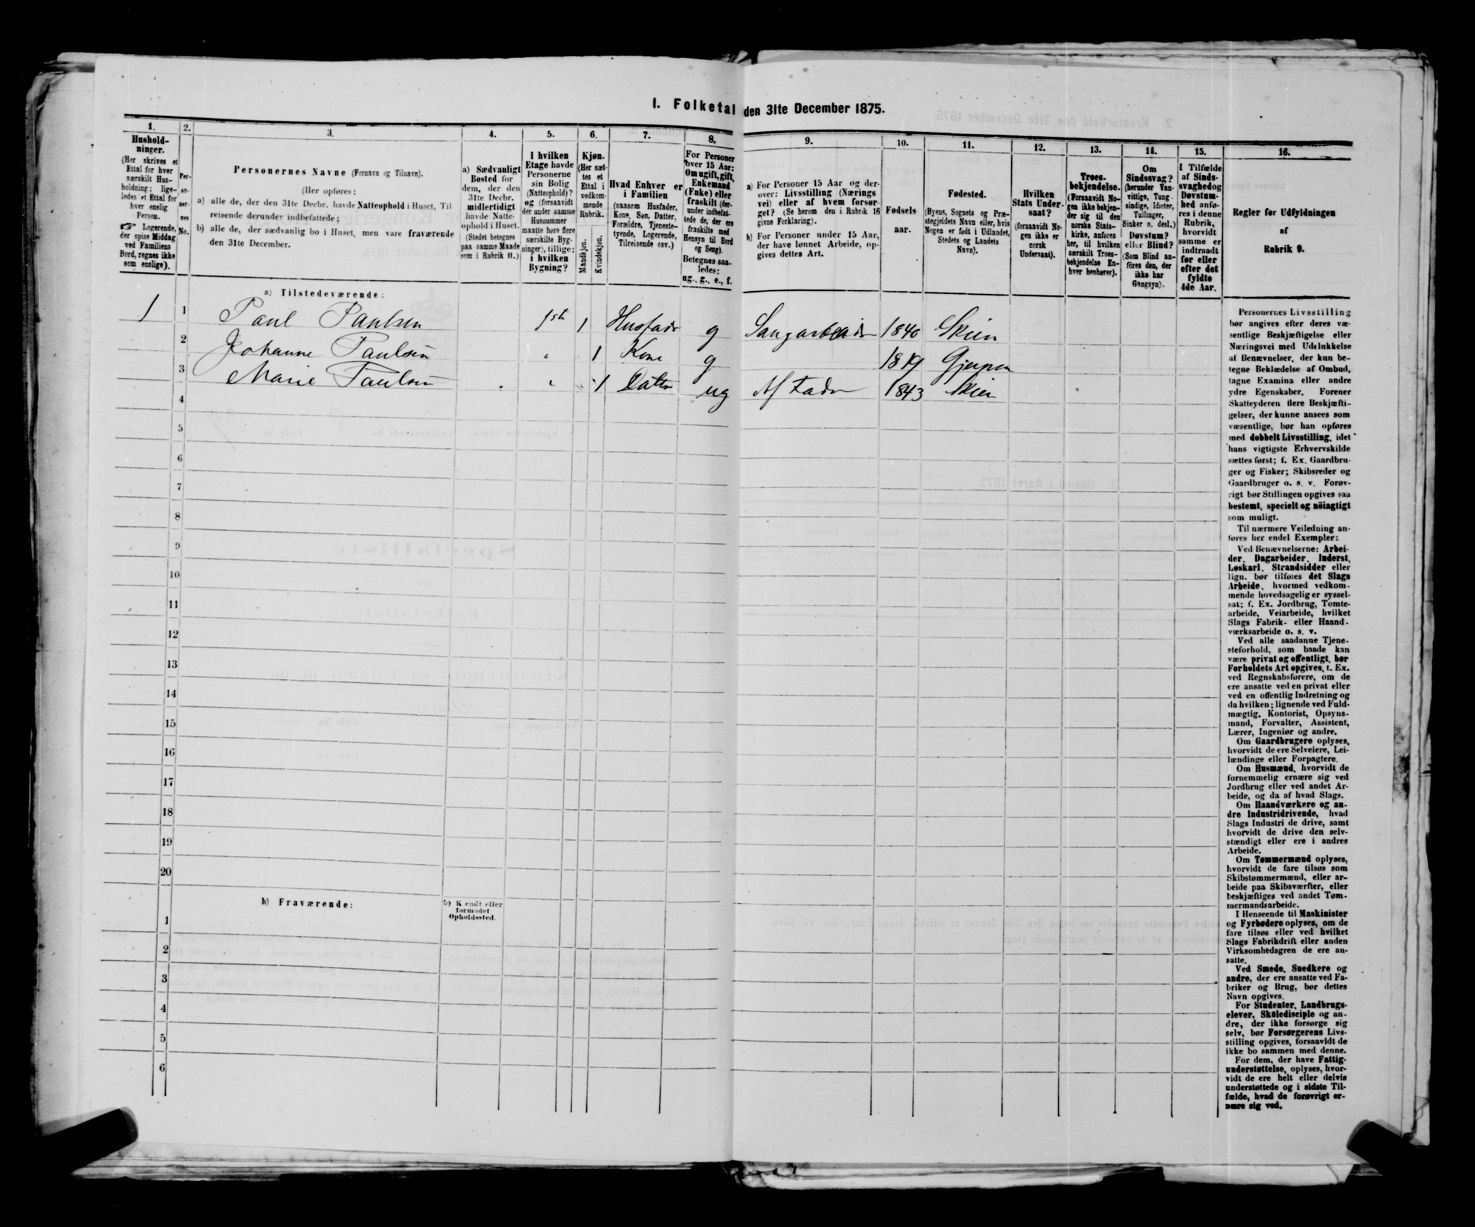 1. Folketal den 31te December 1875.
1.
Hushold-
ninger.
(Her skrives et
Ettal for hver
særskilt Hus-
holdning; lige-
ledes et Ettal for
hver enslig
Person.
☞ Logerende,
der spise Middag
ved Familiens
Bord, regnes ikke
som enslige).
2.
Per-
so-
ner-
nes
No.
3.
Personernes Navne (Fornavn og Tilnavn).
(Her opføres:
a) alle de, der den 31te Decbr. havde Natteophold i Huset, Til
reisende derunder indbefattede;
b) alle de, der sædvanlig bo i Huset, men vare fraværende
den 31te December.
4.
a) Sædvanligt
Bosted for
dem, der den
31te Decbr.
midlertidigt
havde Natte-
ophold i Huset.
(Stedet betegnes
paa samme Maade
som i Rubrik 11.)
5.
I hvilken
Etage havde
Personerne
sin Bolig
(Natteophold)?
og (forsaavidt
der under samme
Husnummer
maatte høre flere
særskilte Byg-
ninger), tillige:
i hvilken
Bygning?
6.
Kjøn.
(Her sæt-
tes et
Ettal i
vedkom-
mende
Rubrik.)
Mandkjøn.
Kvindekjøn.
7.
Hvad Enhver er
i Familien
(saasom Husfader,
Kone, Søn, Datter,
Forældre, Tjeneste-
tyende, Logerende,
Tilreisende osv.)
8.
For Personer
over 15 Aar:
Om ugift, gift,
Enkemand
(Enke) eller
fraskilt (der-
under indbefat-
tede de, der ere
fraskilte med
Hensyn til Bord
og Seng).
Betegnes saa-
ledes:
ug., g., e., f.
9.
a) For Personer 15 Aar og der-
over: Livsstilling (Nærings
vei) eller af hvem forsør-
get? (Se herom den i Rubrik 16
givne Forklaring).
b) For Personer under 15 Aar,
der have lønnet Arbeide, op-
gives dettes Art.
10.
Fødsels
aar.
11.
Fødested.
(Byens, Sognets og Præ-
stegjeldets Navn eller, hvis
Nogen er født i Udlandet,
Stedets og Landets
Navn).
12.
Hvilken
Stats Under-
saat?
(forsaavidt No-
gen ikke er
norsk
Undersaat).
13.
Troes-
bekjendelse.
(Forsaavidt No-
gen ikke bekjen-
der sig til den
norske Stats-
kirke, anføres
her, til hvilken
særskilt Troes-
bekjendelse En-
hver henhører).
14.
Om
Sindssvag?
(herunder Van-
vittige, Tung-
sindige, Idioter,
Tullinger,
Sinker o. desl.)
Døvstum?
eller Blind?
(Som Blind an-
føres den, der
ikke har
Gangsyn).
15.
I Tilfælde
af Sinds-
svaghed og
Døvstum-
hed anfø-
res i denne
Rubrik,
hvorvidt
samme er
indtraadt
før eller
efter det
fyldte
4de Aar.
16.
Regler for Udfyldningen
af
Rubrik 9.
a) Tilstedeværende:
1 1 Paul Paulsen 1st 1 Husfader g 1840 Skien
2 Johanne Paulsen " 1 Kone g 1819 Gjerpen
3 Marie Paulsen " 1 Datter ug Af Fader 1843 Skien
4
5
6
7
8
9
10
11
12
13
14
15
16
17
18
19
20
b) Fraværende:
b) Kjendt eller
formodet
Opholdssted.
1
2
3
4
5
6
Personernes Livsstilling
bør angives efter deres væ-
sentlige Beskjæftigelse eller
Næringsvei med Udelukkelse
af Benævnelser, der kun be-
tegne Beklædelse af Ombud,
tagne Examina eller andre
ydre Egenskaber. Forener
Skatteyderen flere Beskjæfti-
gelser, der kunne ansees som
væsentlige, bør han opføres
med dobbelt Livsstilling, idet
hans vigtigste Erhvervskilde
sættes først; f. Ex. Gaardbru-
ger og Fisker; Skibsreder og
Gaardbruger o. s. v. Forøv-
rigt bør Stillingen opgives saa
bestemt, specielt og nöiagtigt
som muligt.
Til nærmere Veiledning an-
føres her endel Exempler:
Ved Benævnelserne: Arbei-
der, Dagarbeider, Inderst,
Løskarl, Strandsidder eller
lign. bør tilføies det Slags
Arbeide, hvormed vedkom-
mende hovedsagelig er syssel-
sat; f. Ex. Jordbrug, Tomte-
arbeide, Veiarbeide, hvilket
Slags Fabrik- eller Haand-
værksarbeide o. s. v.
Ved alle saadanne Tjene-
steforhold, som baade kan
være privat og offentligt, bør
Forholdets Art opgives, t. Ex.
ved Regnskabsførere, om de
ere ansatte ved en privat eller
ved en offentlig Indretning og
da hvilken; lignende ved Fuld-
mægtig, Kontorist, Opsyns-
mand, Forvalter, Assistent,
Lærer, Ingeniør og andre.
Om Gaardbrugere oplyses,
hvorvidt de ere Selveiere, Lei-
lændinge eller Forpagtere.
Om Husmænd, hvorvidt de
fornemmelig ernære sig ved
Jordbrug eller ved andet Ar-
beide, og da af hvad Slags.
Om Haandværkere og an-
dre Industridrivende, hvad
Slags Industri de drive, samt
hvorvidt de drive den selv-
stændigt eller ere i andres
Arbeide.
Om Tømmermænd oplyses,
hvorvidt de fare tilsøs som
Skibstømmermænd, eller ar-
beide paa Skibsværfter, eller
beskjæftiges ved andet Tøm-
mermandsarbeide.
I Henseende til Maskinister
og Fyrbødere oplyses, om de
fare tilsøs eller ved hvilket
Slags Fabrikdrift eller anden
Virksomhedsgren de ere an-
satte.
Ved Smede, Snedkere og
andre, der ere ansatte ved Fa-
briker og Brug, bør dettes
Navn opgives.
For Studenter, Landbrugs-
elever, Skoledisciple og an-
dre, der ikke forsørge sig
selv, bør Forsørgerens Livs-
stilling opgives, forsaavidt de
ikke bo sammen med denne.
For dem, der have Fattig-
understøttelse, oplyses, hvor-
vidt de ere helt eller delvis
understøttede og i sidste Til-
fælde, hvad de forøvrigt er-
nære sig ved.